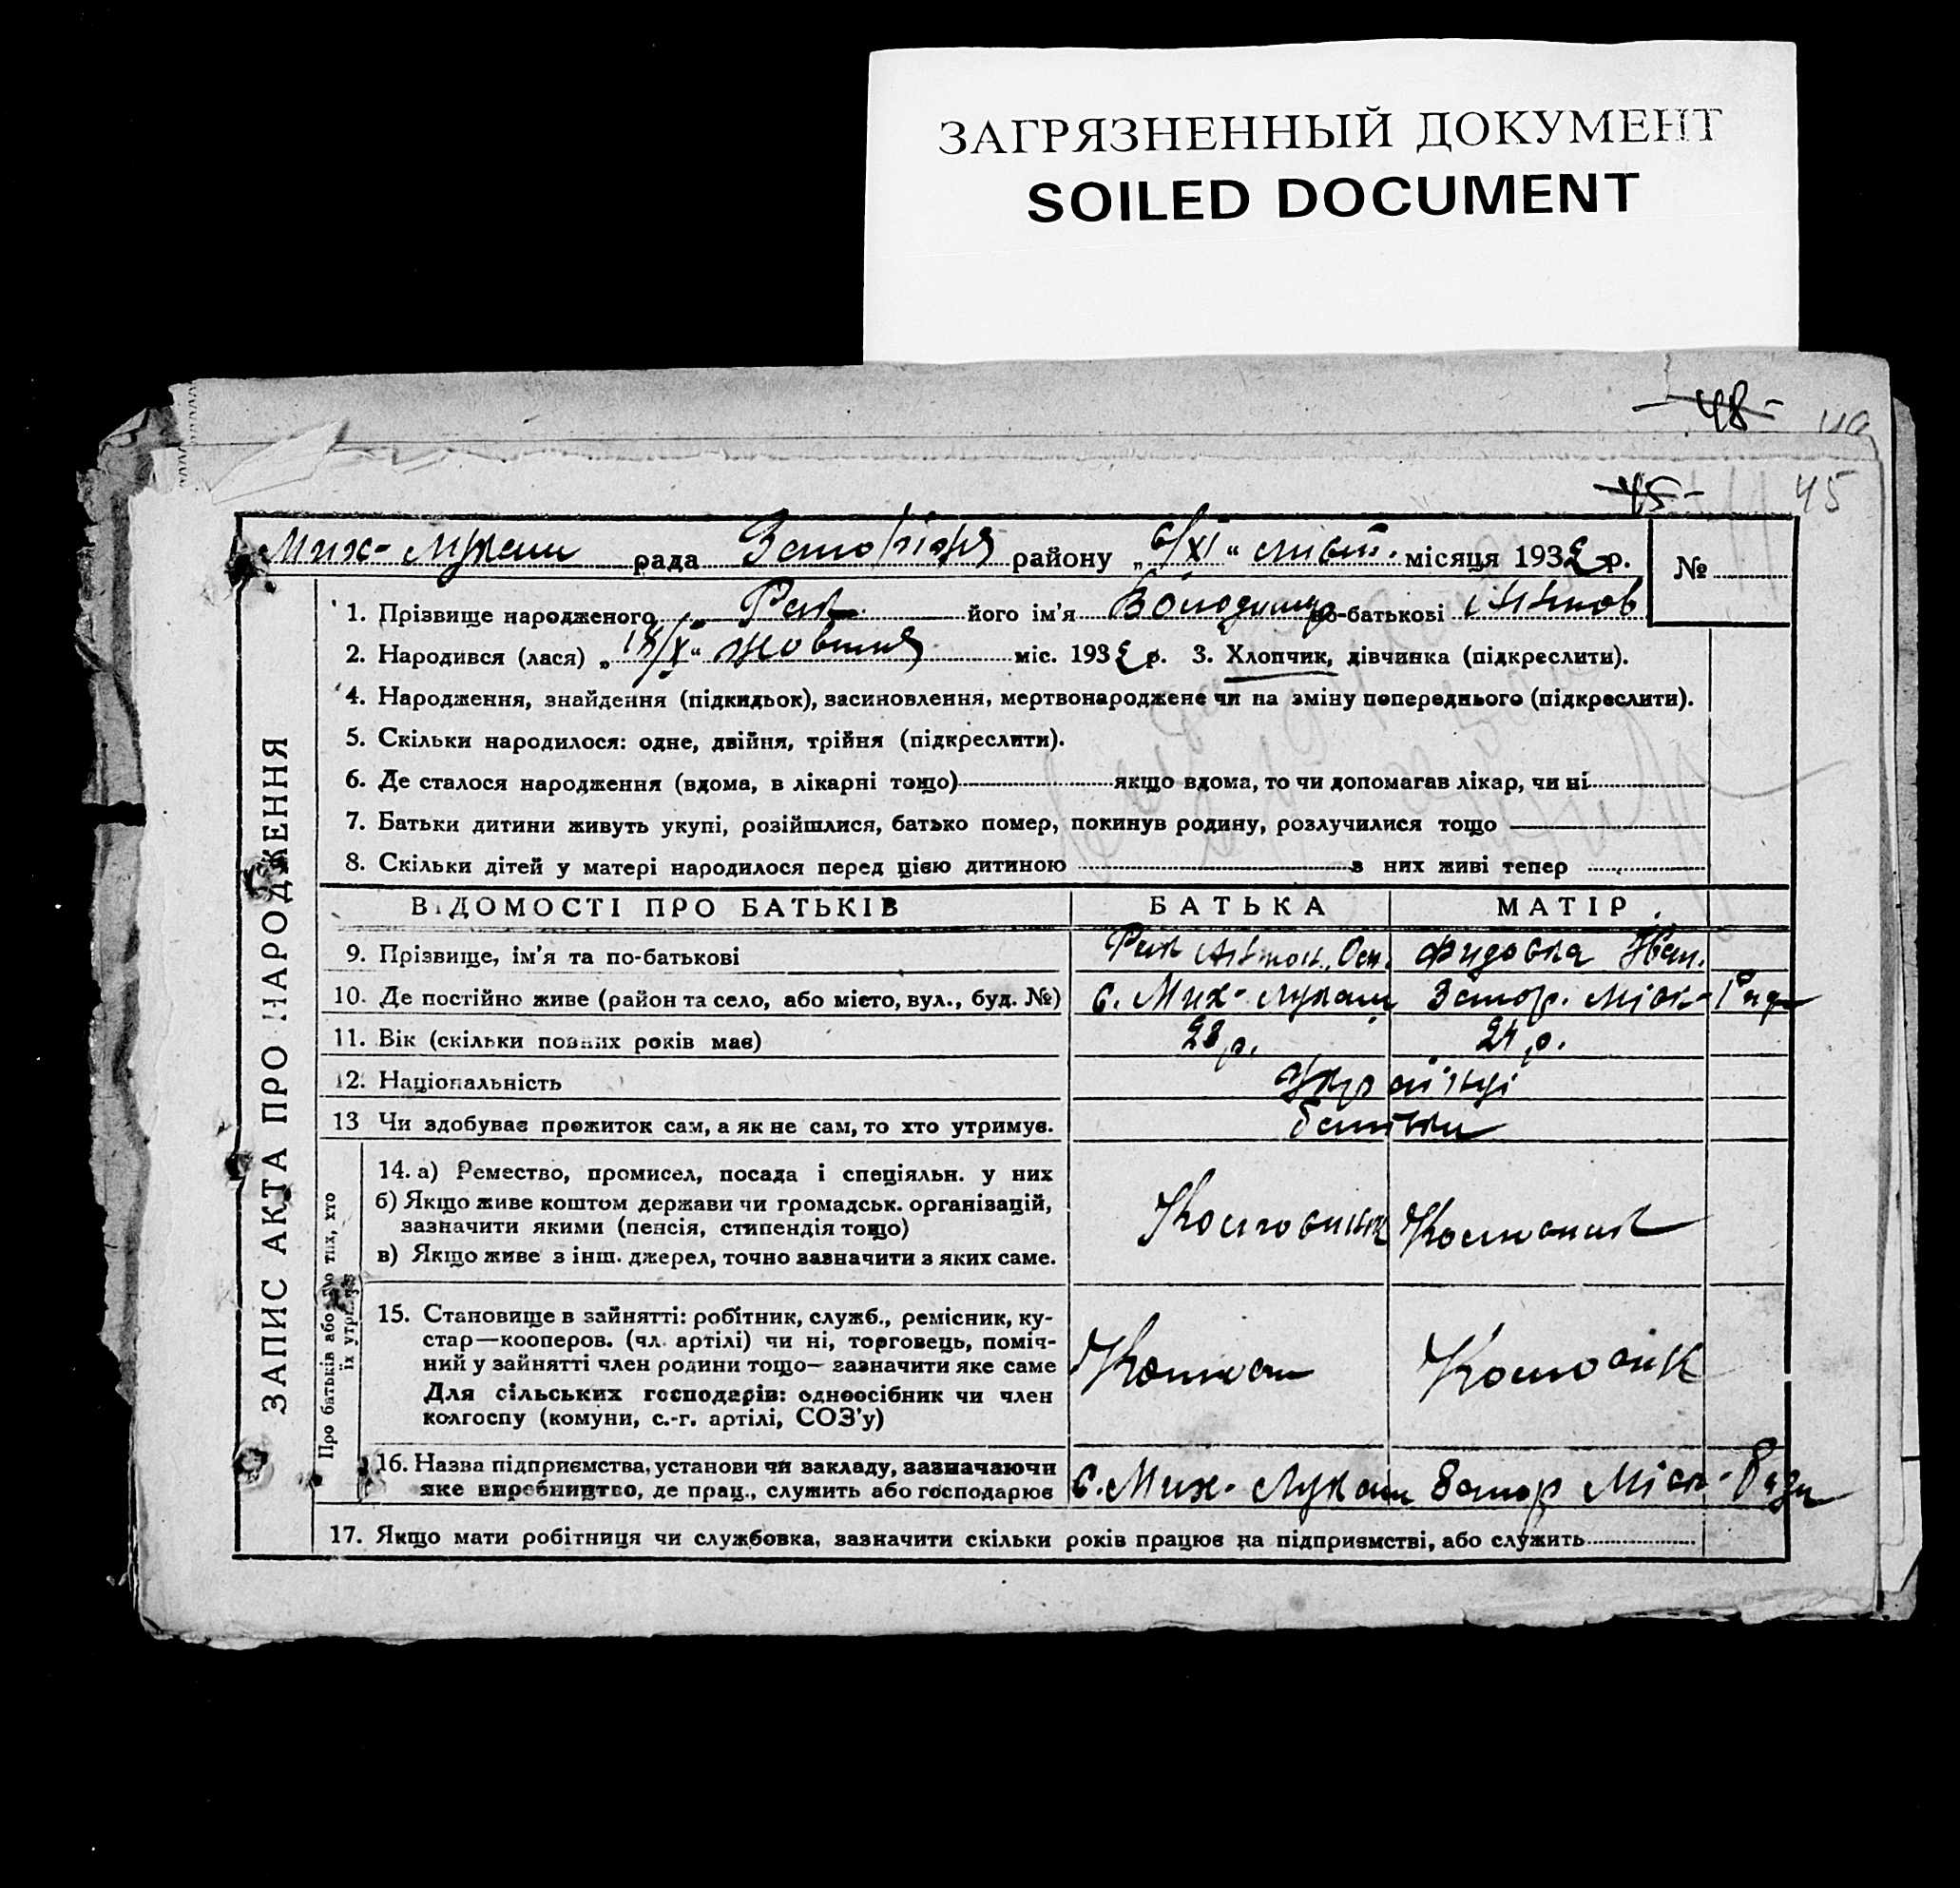 ЗАГРЯЗНЕННЫЙ ДОКУМЕНТ
SOILED DOCUMENT
48
45 45
Мих-Лукаш рада Запоріжя району „6/XI“ лист. місяця 1932 р. №
1. Прізвище народженого його ім'я Володимир по-батькові Антнов
2. Народився (лася) „ /X“ жовтня міс. 1932 р. 3. Хлопчик, дівчинка (підкреслити).
4. Народження, знайдення (підкидьок), засиновлення, мертвонароджене чи на зміну попереднього (підкреслити).
5. Скільки народилося: одне, двійня, трійня (підкреслити).
6. Де сталося народження (вдома, в лікарні тощо) якщо вдома, то чи допомагав лікар, чи ні
7. Батьки дитини живуть укупі, розійшлися, батько помер, покинув родину, розлучилися тощо
8. Скільки дітей у матері народилося перед цією дитиною з них живі тепер
ЗАПИС АКТА ПРО НАРОДЖЕННЯ
ВІДОМОСТІ ПРО БАТЬКІВ БАТЬКА МАТІР
9. Прізвище, ім'я та по-батькові Антон. Фидосka Іван.
10. Де постійно живе (район та село, або місто, вул., буд. №) с. Мих-Лукаш Запор. Міск-Ради
11. Вік (скільки повних років має) 28 р. 24 р.
12. Національність Українці
13 Чи здобуває прожиток сам, а як не сам, то хто утримує. батьки
Про батьків або про тих, хто їх утримує
14. а) Ремество, промисел, посада і спеціяльн. у них
б) Якщо живе коштом держави чи громадськ. організацій,
зазначити якими (пенсія, стипендія тощо)
в) Якщо живе з інш. джерел, точно зазначити з яких саме.
15. Становище в зайнятті: робітник, служб., ремісник, ку-
стар—кооперов. (чл. артілі) чи ні, торговець, поміч-
ний у зайнятті член родини тощо— зазначити яке саме
Для сільських господарів: одноосібник чи член
колгоспу (комуни, с.-г. артілі, СОЗ'у)
16. Назва підприємства, установи чи закладу, зазначаючи
яке виребництво, де прац., служить або господарює с. Мих-Лукаш Запор Міск-Ради
17. Якщо мати робітниця чи службовка, зазначити скільки років працює на підприємстві, або служить